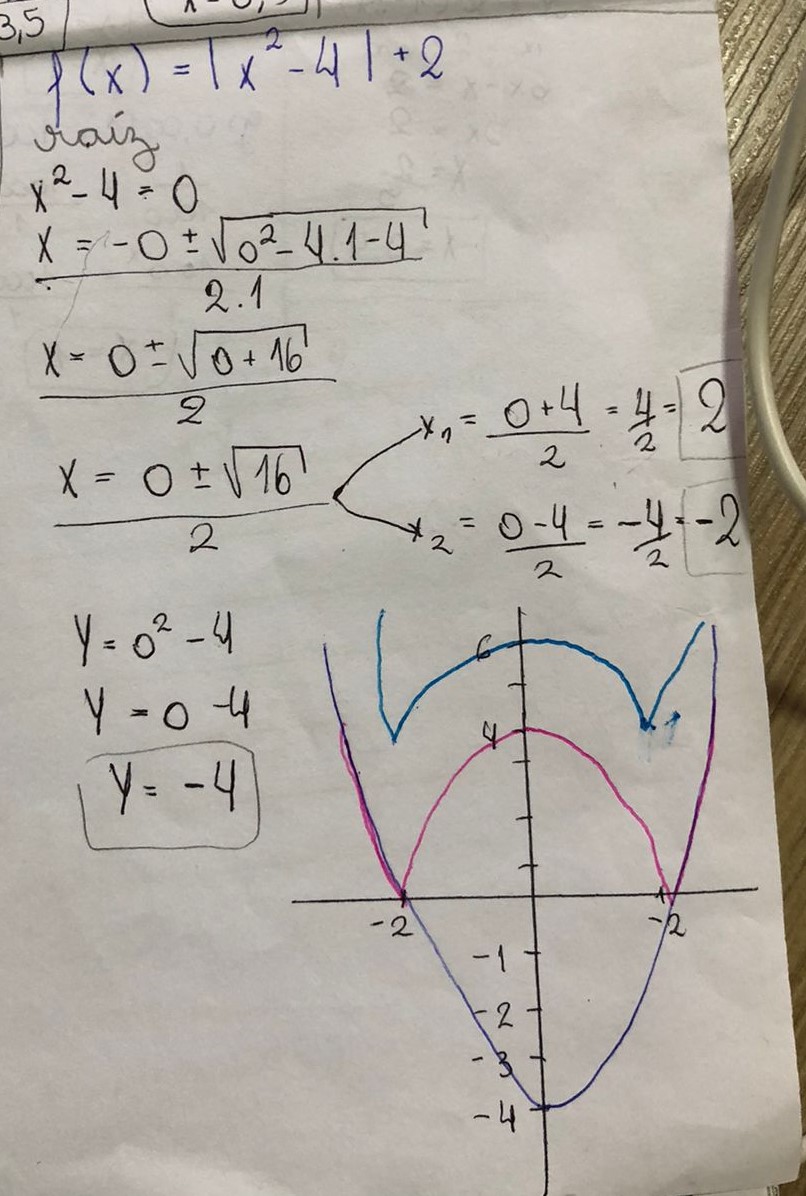 3,5
f(x) = |x² - 4| + 2
raíz
x² - 4 = 0
x = -0 ± √0² - 4.1-4
2.1
x = 0 ± √0 + 16
2
x = 0 ± √16
2
x₁ = 0+4 = 4 = 2
2 2
x₂ = 0-4 = -4 = -2
2 2
y = 0² - 4
y = 0 - 4
y = -4
6
4
-2 -2
-1
-2
-3
-4